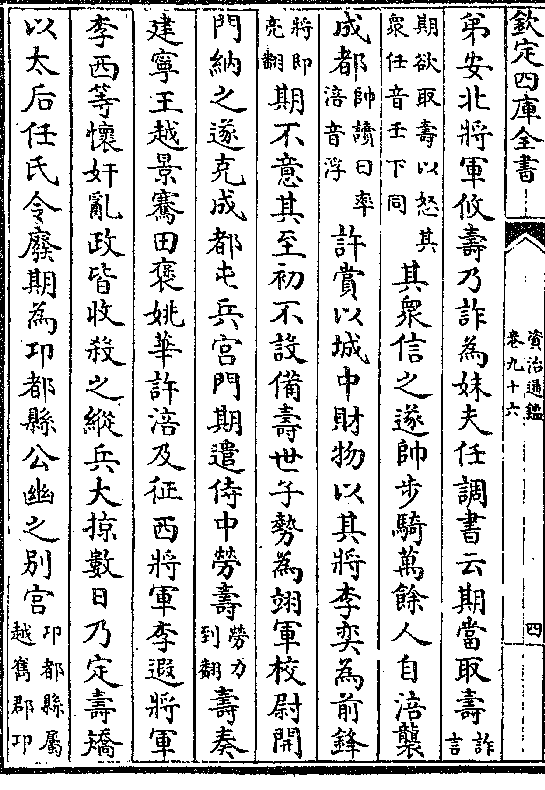 欽定四庫全書
資治通鑑
卷九十六
四
第安北將軍攸壽乃詐為妹夫任調書云期當取壽詐言
期欲取壽以怒其衆任音壬下同其衆信之遂帥步騎萬餘人自涪襲
成都帥讀曰率涪音浮許賞以城中財物以其將李奕為前鋒
將即亮翻期不意其至初不設備壽世子勢為翊軍校尉開
門納之遂克成都屯兵宮門期遣侍中勞壽勞力到翻壽奏
建寧王越景騫田褒姚華許涪及征西將軍李遐將軍
李西等懷奸亂政皆收殺之縱兵大掠數日乃定壽矯
以太后任氏令廢期為邛都縣公幽之别宮邛都縣屬越嶲郡邛